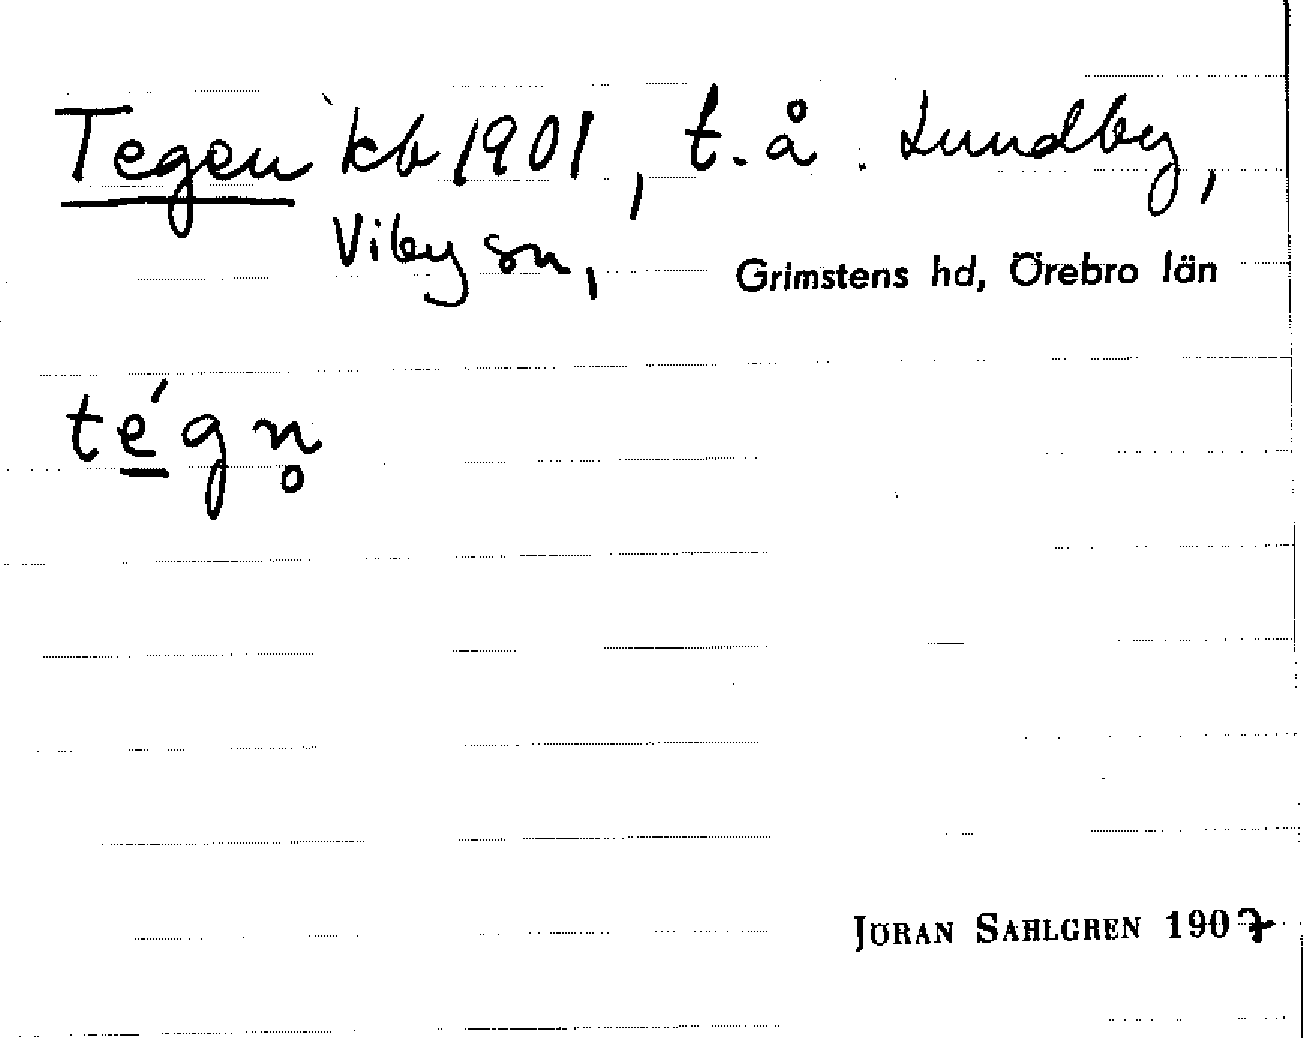 Tegen kb 1901, t. å. Lundby,
Viby sn, Grimstens hd, Örebro län
té̱gn̥
JÖRAN SAHLGREN 1907